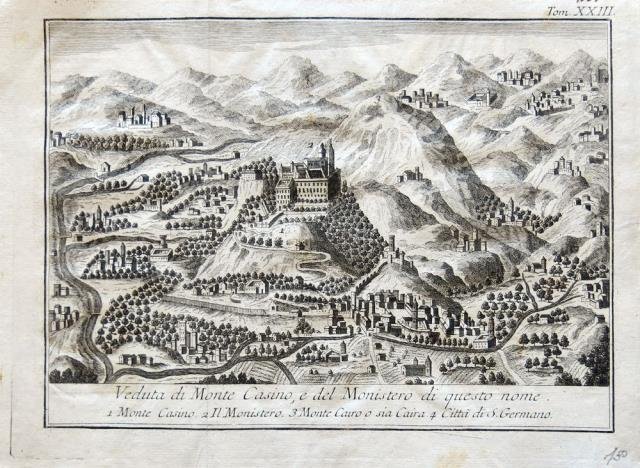 Tom. XXIII.
Veduta di Monte Casino, e del Monistero di questo nome.
1 Monte Casino. 2 Il Monistero. 3 Monte Cairo o sia Caira 4 Città di S. Germano.